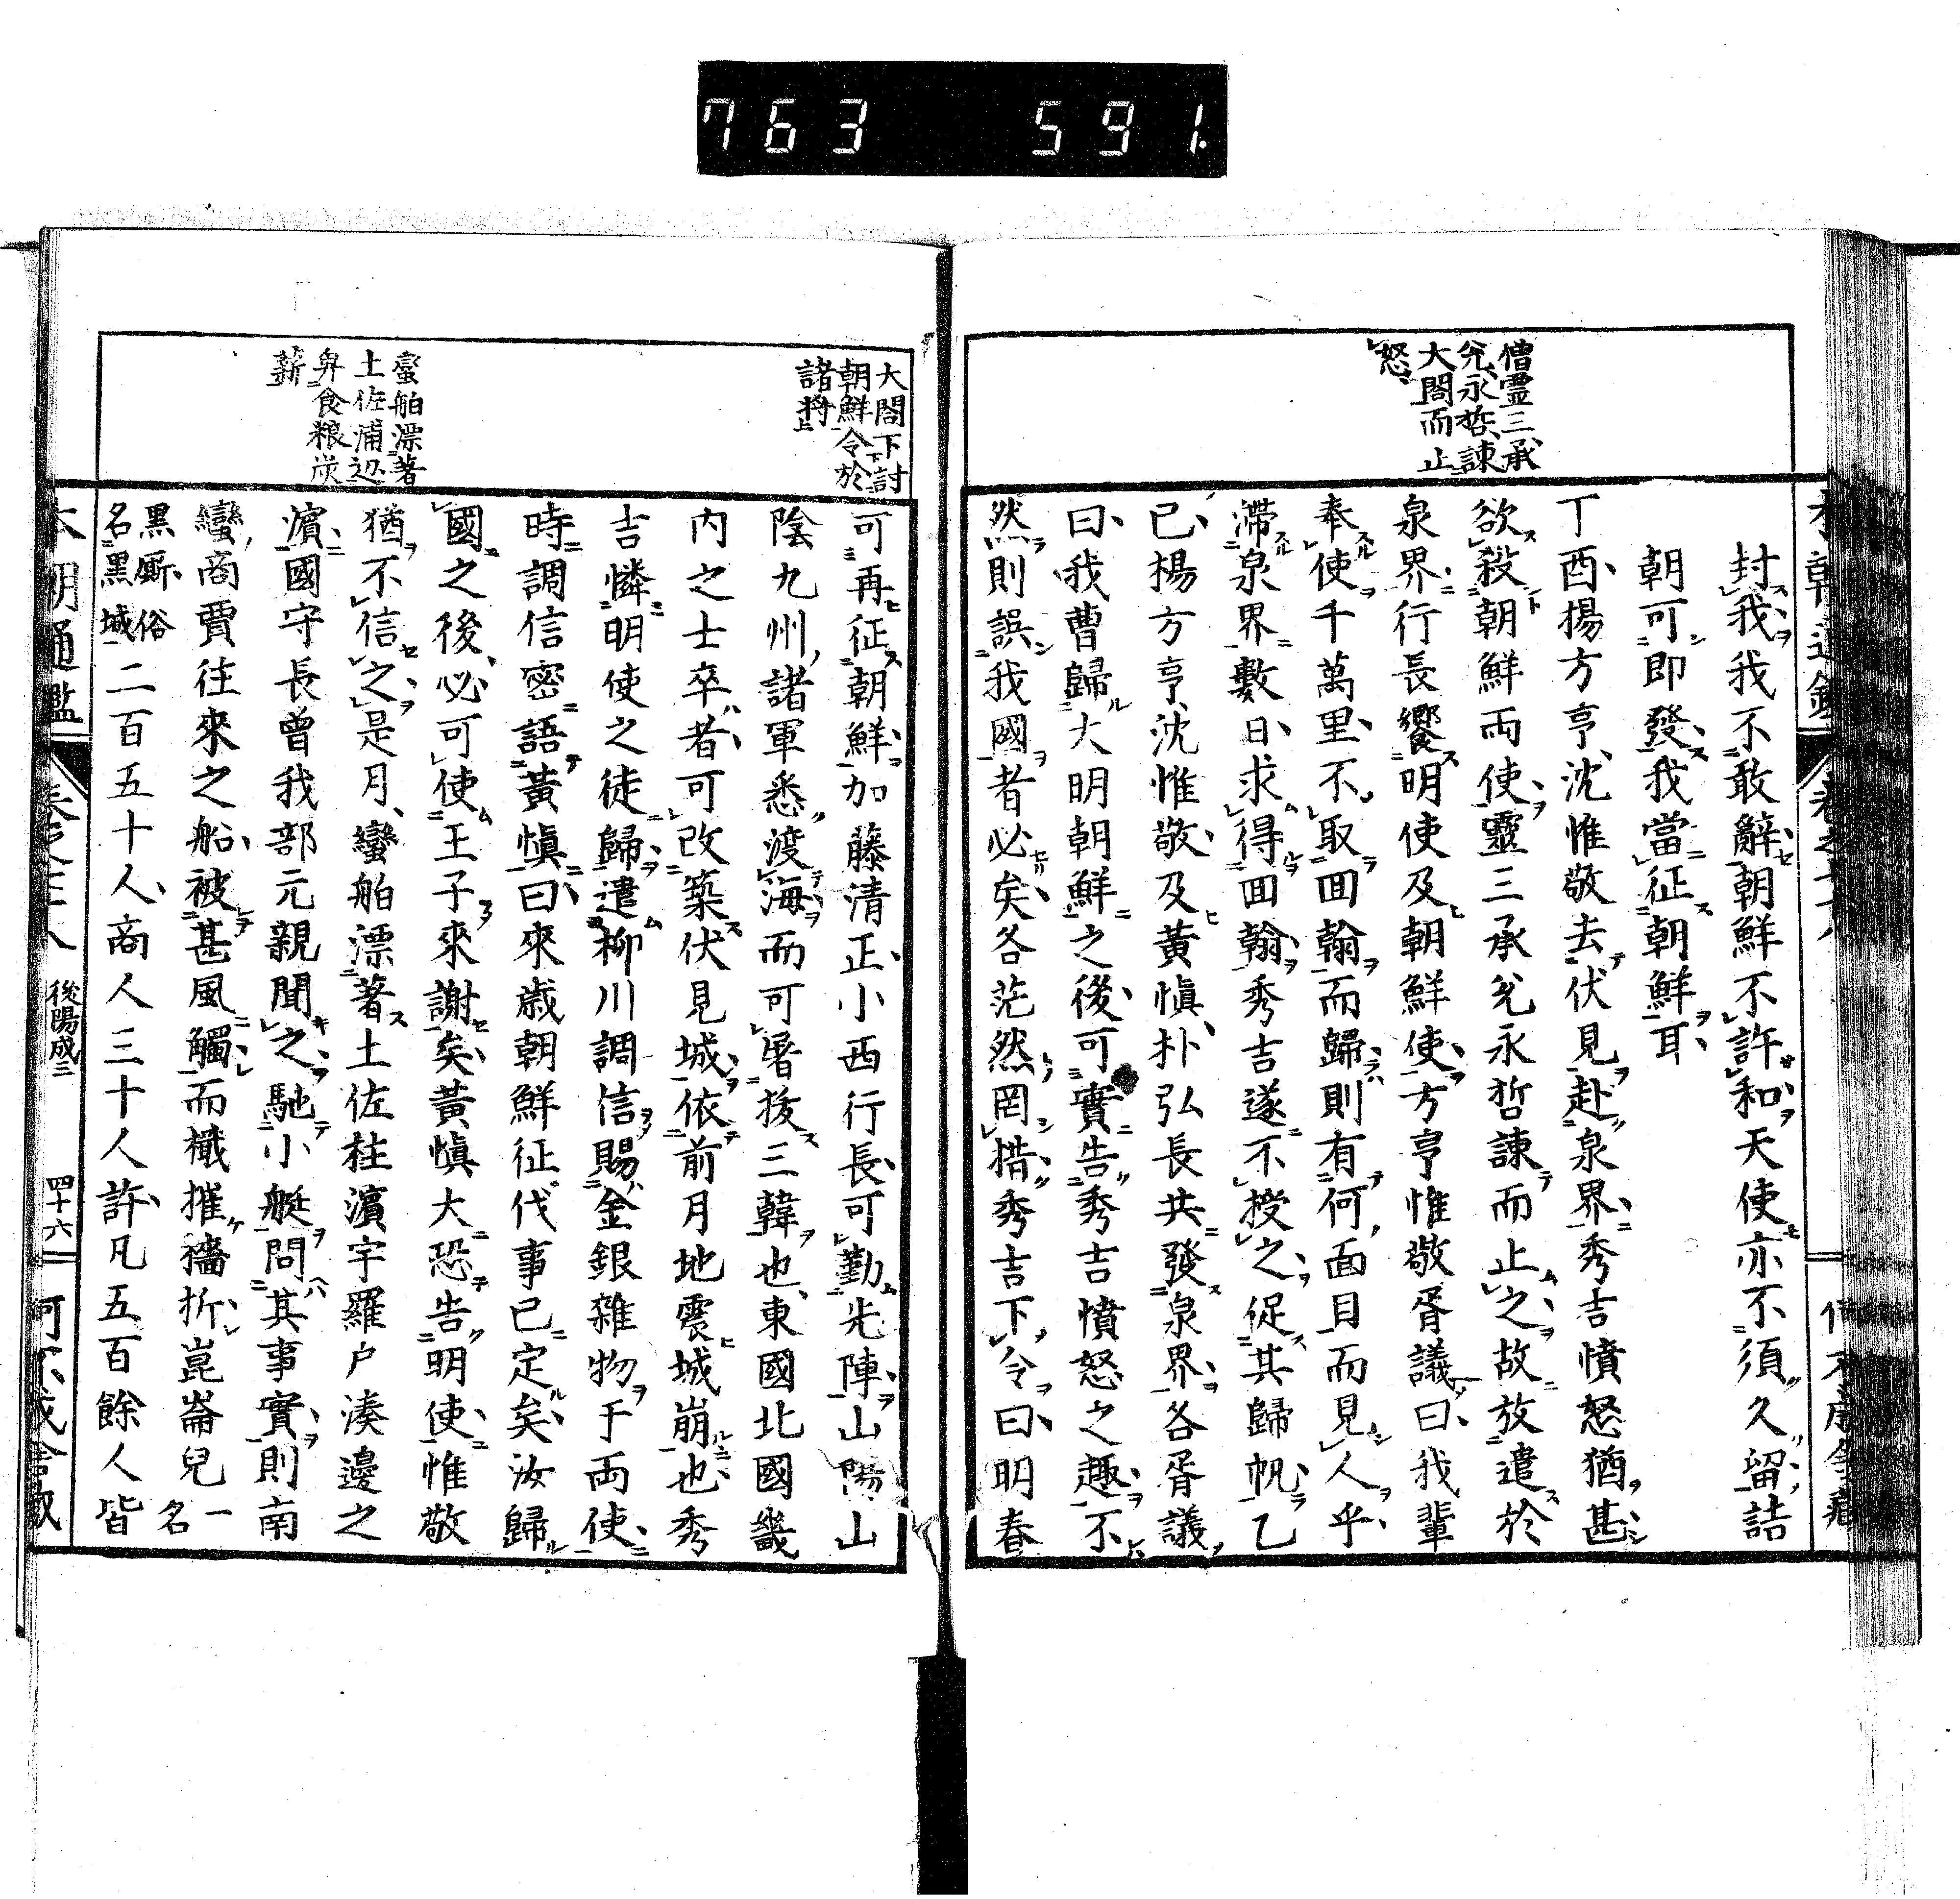 763 591.
僧霊三承
兊永哲諌
大閤而止
怒
封我我不敢辭朝鮮不許和天使亦不須久留詰
朝可即發我當征朝鮮耳
丁酉揚方亨沈惟敬去伏見赴泉界秀吉憤怒猶甚
欲殺朝鮮兩使靈三承兊永哲諌而止之故放遣於
泉界行長饗明使及朝鮮使方亨惟敬胥議曰我輩
奉使千萬里不取囬翰而歸則有何面目而見人乎
滯泉界數日求得囬翰秀吉遂不授之促其歸帆乙
已楊方亨沈惟敬及黃愼朴弘長共發泉界各胥議
曰我曹歸大明朝鮮之後可實告秀吉憤怒之趣不
然則誤我國者必矣各茫然罔措秀吉下令曰明春
大閤下討
朝鮮令於
諸将
可再征朝鮮加藤清正小西行長可勤先陣山陽山
陰九州諸軍悉渡海而可屠拔三韓也東國北國畿
内之士卒者可改築伏見城依前月地震城崩也秀
吉憐明使之徒歸遣柳川調信賜金銀雜物于兩使
時調信密語黃愼曰來歲朝鮮征伐事已定矣汝歸
國之後必可使王子來謝矣黃愼大恐告明使惟敬
猶不信之是月蠻舶漂著土佐桂濵宇羅戸湊邊之
濵國守長曾我部元親聞之馳小艇問其事實則南
蠻商賈往來之船被甚風觸而檝摧檣折崑崙兒一名
黒厮俗名黒城二百五十人商人三十人許凡五百餘人皆
蛮舶漂著
土佐浦辺
畀食粮炭
薪
本朝通鑑
後陽成三
四十六